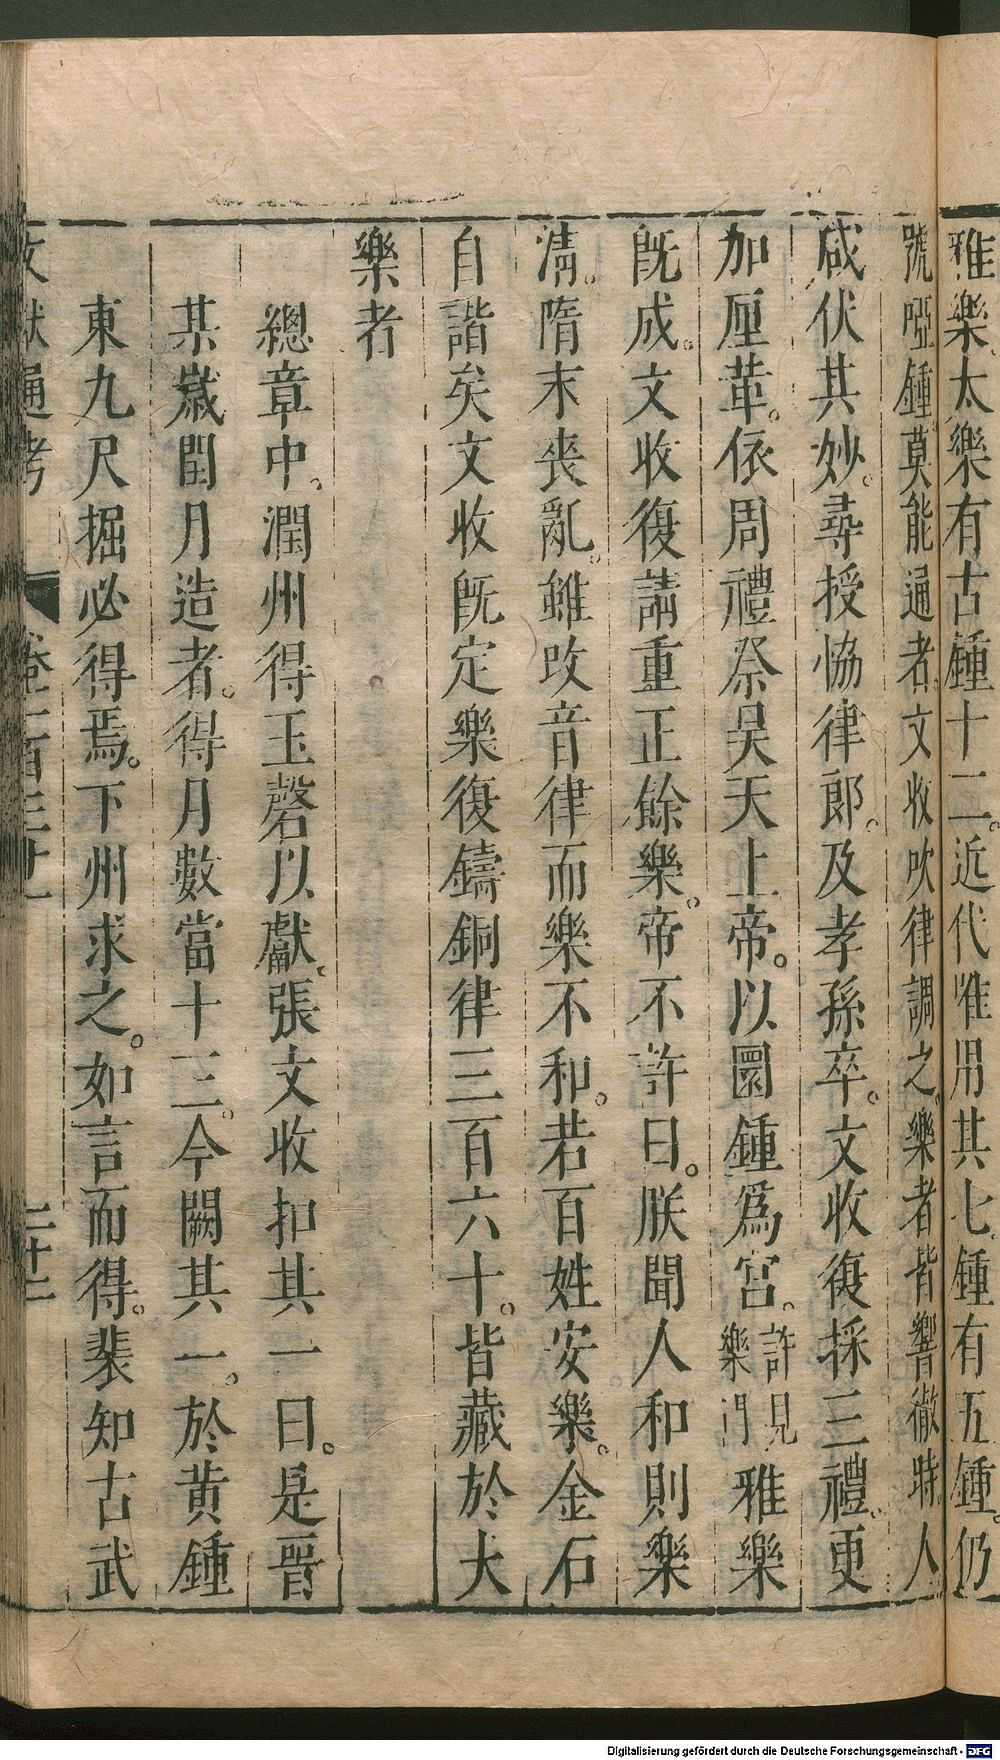 雅樂太樂有古鍾十二近代唯用其七鍾有五鍾仍
號啞鍾莫能通者文收吹律調之樂者皆響徹時人
咸伏其妙尋授恊律郎及孝孫卒文收復採三禮更
加厘革依周禮祭昊天上帝以圜鍾爲宮許見樂門雅樂
旣成文收復請重正餘樂帝不許曰朕聞人和則樂
清隋末喪亂雖改音律而樂不和若百姓安樂金石
自諧矣文收旣定樂復鑄銅律三百六十皆藏於大
樂者
總章中潤州得玉磬以獻張文收扣其一曰是晋
某歲閏月造者得月數當十三今闕其一於黄鍾
東九尺掘必得焉下州求之如言而得裴知古武
文獻通考 卷一百三十一 二十二
Digitalisierung gefördert durch die Deutsche Forschungsgemeinschaft - DFG